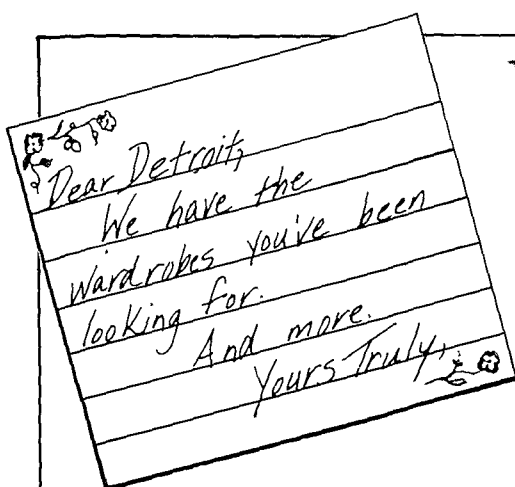 Dear Detroit,
We have the
wardrobes you've been
looking for.
And more.
Yours Truly,